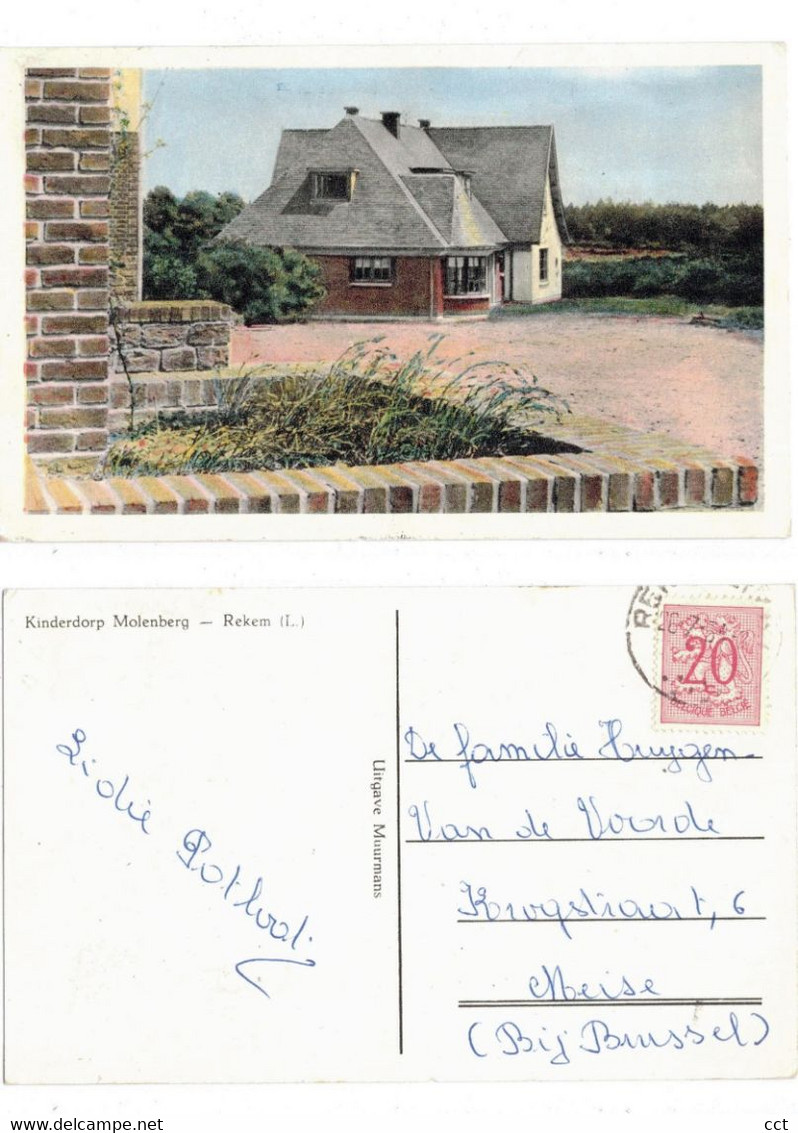 Kinderdorp Molenberg — Rekem (L.)
20
BELGIQUE BELGIË
Uitgave Muurmans
Lidie Pothoot
De familie Huygen-
Van de Voorde
Krogstraat, 6
Meise
(Bij Brussel)
www.delcampe.net
cct